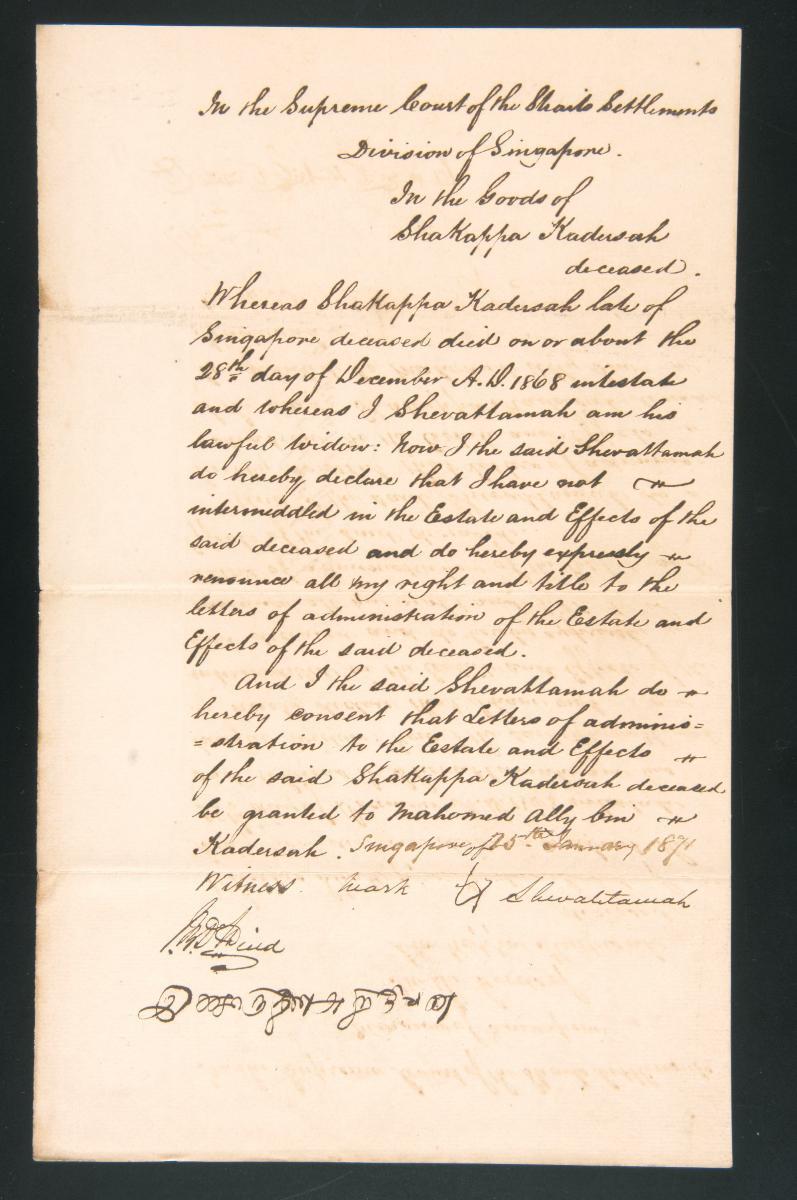 In the Supreme Court of the Straits Settlements
Division of Singapore.
In the Goods of
Shakappa Kadersah
deceased.
Whereas Shakappa Kadersah late of
Singapore deceased died on or about the
28th day of December A.D. 1868 intestate
and whereas I Shevattamah am his
lawful widow: Now I the said Shevattamah
do hereby declare that I have not
intermeddled in the Estate and Effects of the
said deceased and do hereby expressly
renounce all my right and title to the
letters of administration of the Estate and
Effects of the said deceased.
And I the said Shevattamah do
hereby consent that Letters of adminis=
=stration to the Estate and Effects
of the said Shakappa Kadersah deceased
be granted to Mahomed Ally bin
Kadersah. Singapore 25th January 1871
Witness mark Shevattamah